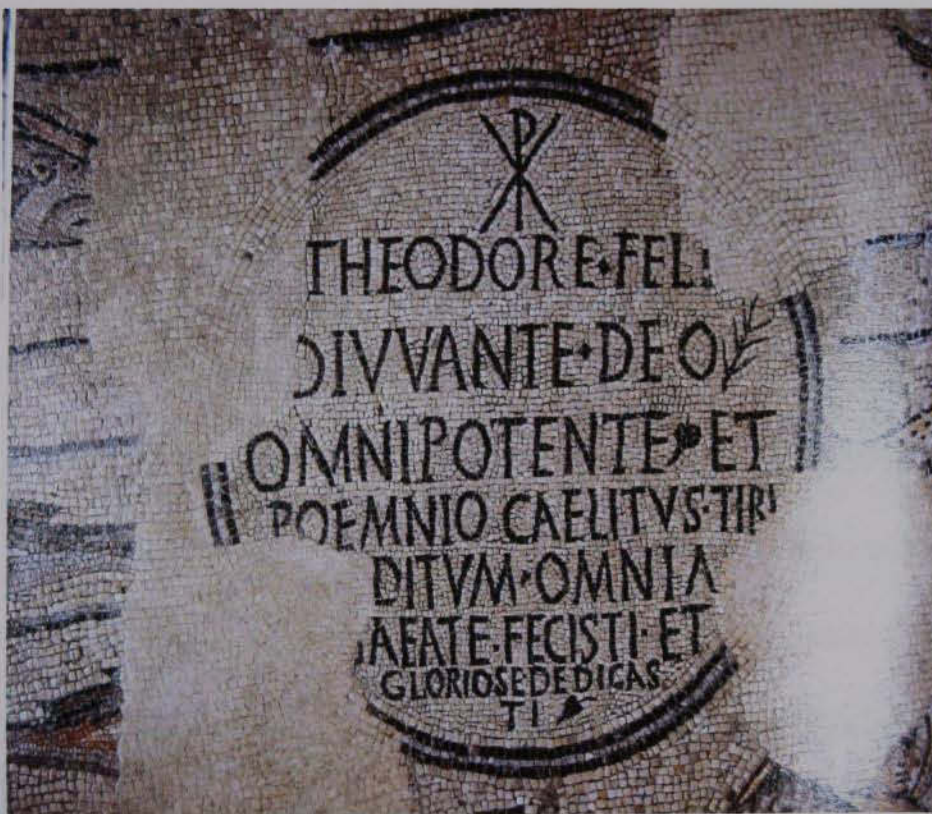 THEODORE·FELI
DIVVANTE·DEO
OMNIPOTENTE·ET
POEMNIO CAELITVS·TIRI
DITVM·OMNIA
AEATE·FECISTI·ET
GLORIOSEDEDICAS
TI